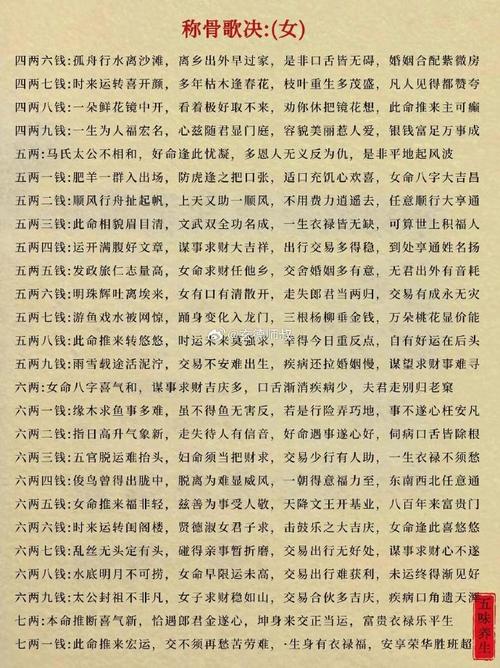 称骨歌决:(女)
四两六钱:孤舟行水离沙滩，离乡出外早过家，是非口舌皆无碍，婚姻合配紫微房
四两七钱:时来运转喜开颜，多年枯木逢春花，枝叶重生多茂盛，凡人见得都赞夸
四两八钱:一朵鲜花镜中开，看着极好取不来，劝你休把镜花想，此命推来主可癫
四两九钱:一生为人福宏名，心兹随君显门庭，容貌美丽惹人爱，银钱富足万事成
五两:马氏太公不相和，好命逢此忧凝，多恩人无义反为仇，是非平地起风波
五两一钱:肥羊一群入出场，防虎逢之把口张，适口充饥心欢喜，女命八字大吉昌
五两二钱:顺风行舟扯起帆，上天又助一顺风，不用费力逍遥去，任意顺行大享通
五两三钱:此命相貌眉目清，文武双全功名成，一生衣禄皆无缺，可算世上积福人
五两四钱:运开满腹好文章，谋事求财大吉祥，出行交易多得稳，到处享通姓名扬
五两五钱:发政旅仁志量高，女命求财任他乡，交舍婚姻多有意，无君出外有音耗
五两六钱:明珠辉吐离埃来，女有口有清散开，走失郎君当两归，交易有成永无灾
五两七钱:游鱼戏水被网惊，踊身变化入龙门，三根杨柳垂金钱，万朵桃花显价能
五两八钱:此命推来转悠悠，时运未来莫强求，幸得今日重反点，自有好运在后头
五两九钱:雨雪载途活泥泞，交易不安难出生，疾病还拉婚姻慢，谋望求财事难寻
六两:女命八字喜气和，谋事求财吉庆多，口舌渐消疾病少，夫君走别归老窠
六两一钱:缘木求鱼事多难，虽不得鱼无害反，若是行险弄巧地，事不遂心枉安凡
六两二钱:指日高升气象新，走失待人有信音，好命遇事遂心好，伺病口舌皆除根
六两三钱:五官脱运难抬头，妇命须当把财求，交易少行有人助，一生衣禄不须愁
六两四钱:俊鸟曾得出胧中，脱离为难显威风，一朝得意福力至，东南西北任意通
六两五钱:女命推来福非轻，兹善为事受人敬，天降文王开基业，八百年来富贵门
六两六钱:时来运转闺阁楼，贤德淑女君子求，击鼓乐之大吉庆，女命逢此喜悠悠
六两七钱:乱丝无头定有头，碰得亲事暂折磨，交易出行无好处，谋事求财心不遂
六两八钱:水底明月不可捞，女命早限运未高，交易出行难获利，未运终得渐见好
六两九钱:太公封祖不非凡，女子求财稳如山，交易合伙多吉庆，疾病口角遗天涯
七两:本命推断喜气新，恰遇郎君金遂心，坤身来交正当运，富贵衣禄乐平生
七两一钱:此命推来宏运，交不须再愁苦劳难，·生身有衣禄福，安享荣华胜班超
五味养生